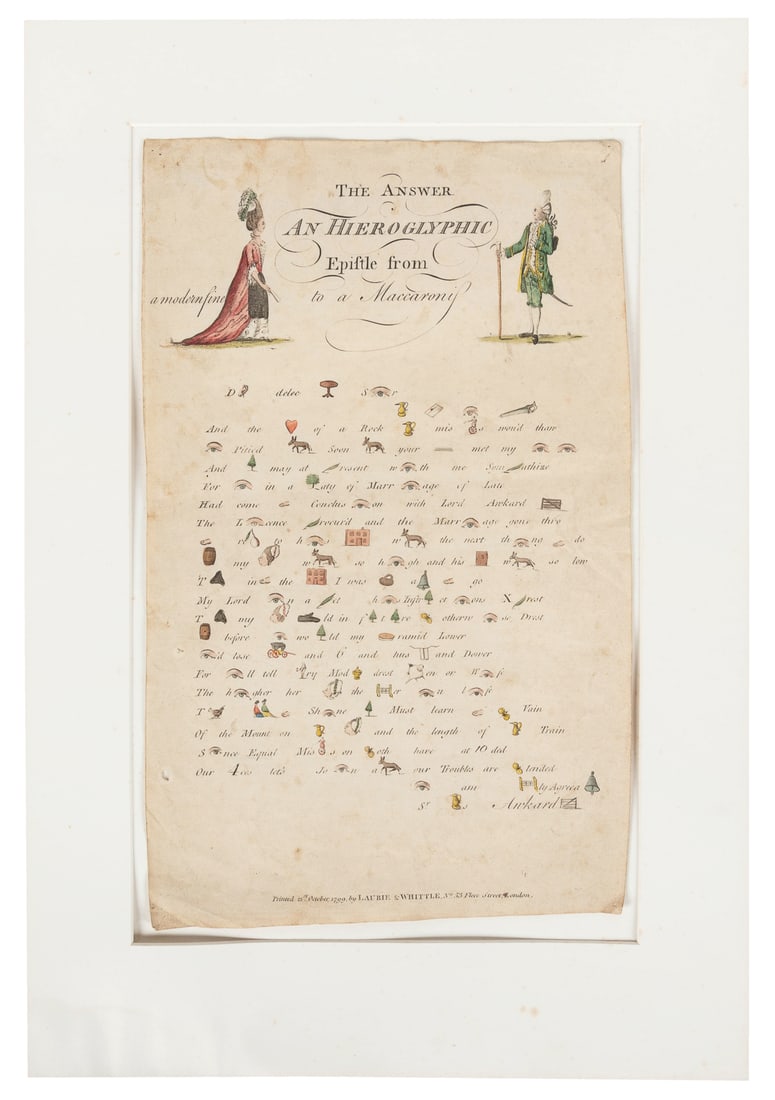 THE ANSWER
AN HIEROGLYPHIC
Epistle from
a modern fine to a Maccaroni
D delec S r
And the of a Rock mis s wou'd thaw
Pitied Soon your met my
And may at resent w th me Sym athize
For in a aty of Marr age of Late
Had come Conclus on with Lord Awkard
The L cence rocur'd and the Marr age gone thro
re h s w the next th ng do
my w so h gh and his w so low
T in the I was a go
My Lord n a et h s Infir et ons X rest
T my ld in f t re othern se Drest
before wo ld my ramid Lower
'd lose and 6 and hus and Dower
For ll tell ry Mod drest en or W fe
The h gher her the er n l fe
T Sh ne Must learn Vain
Of the Mount on and the length of Train
S nce Equal Mis s on oth have at 10 ded
Our 4ces let's Jo n a our Troubles are lended
am ly Agriev'd
Sr s Awkard
Printed 12th October, 1799, by LAURIE & WHITTLE, No 53 Fleet Street, London.